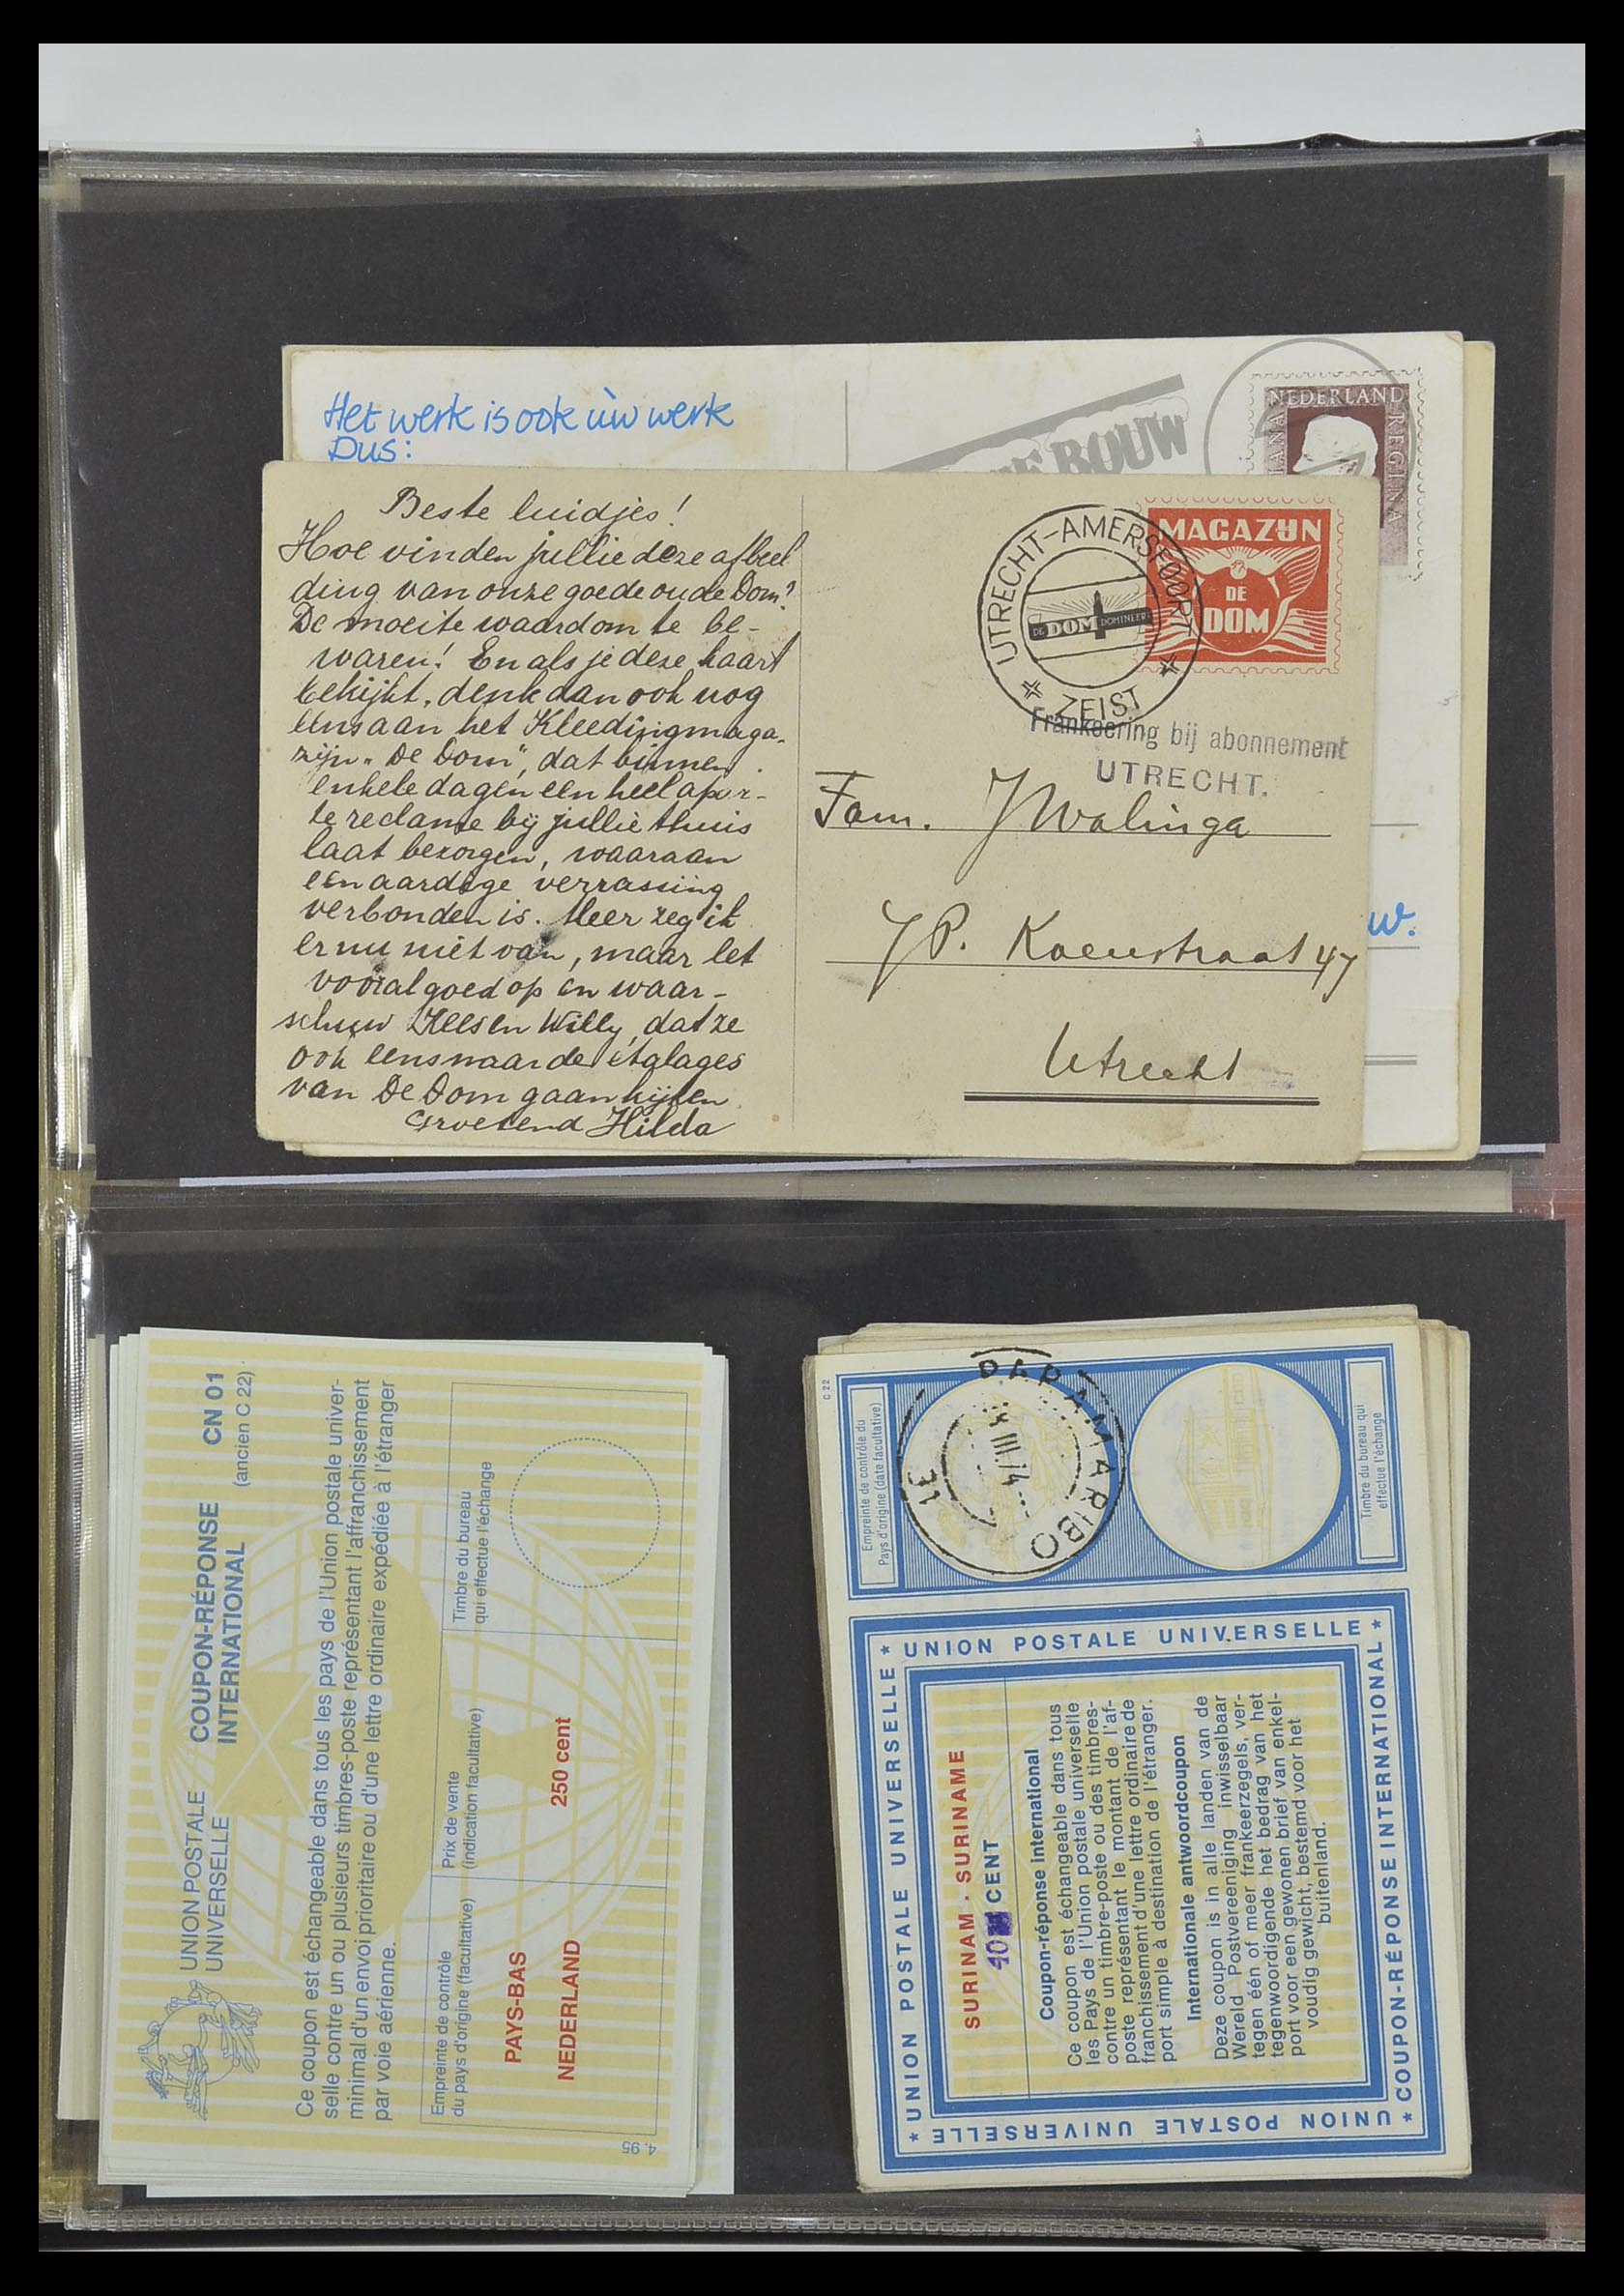 Het werk is ook ùw werk
Dus:
BOUW
NEDERLAND
REGINA
Beste luidjes!
Hoe vinden jullie deze afbeel
ding van onze goede oude Dom?
De moeite waard om te be-
waren! En als je deze kaart
bekijkt, denk dan ook nog
eens aan het Kleedingmaga-
zijn "De Dom", dat binnen
enkele dagen een heel apar-
te reclame bij jullie thuis
laat bezorgen, waaraan
een aardige verrassing
verbonden is. Meer zeg ik
er nu niet van, maar let
vooral goed op en waar-
schuw Kees en Willy, dat ze
ook eens naar de étalages
van De Dom gaan kijken
Groetend Hilda
UTRECHT-AMERSFOORT
DE DOM DOMINEER
ZEIST
MAGAZIJN
DE
DOM
Frankeering bij abonnement
UTRECHT.
Fam. J Walinga
J P. Koenstraat 47
Utrecht
w.
UNION POSTALE
UNIVERSELLE
COUPON-RÉPONSE
INTERNATIONAL
CN 01
(ancien C 22)
Ce coupon est échangeable dans tous les pays de l'Union postale univer-
selle contre un ou plusieurs timbres-poste représentant l'affranchissement
minimal d'un envoi prioritaire ou d'une lettre ordinaire expédiée à l'étranger
par voie aérienne.
Empreinte de contrôle
du pays d'origine (facultative)
PAYS-BAS
NEDERLAND
Prix de vente
(indication facultative)
250 cent
Timbre du bureau
qui effectue l'échange
4.95
C 22
Empreinte de contrôle du
Pays d'origine (date facultative)
PARAMARIBO
III.74
Timbre du bureau qui
effectue l'échange
* UNION POSTALE UNIVERSELLE *
UNION POSTALE UNIVERSELLE *
* COUPON-RÉPONSE INTERNATIONAL *
UNION POSTALE UNIVERSELLE *
SURINAM - SURINAME
40 CENT
Coupon-réponse international
Ce coupon est échangeable dans tous
les Pays de l'Union postale universelle
contre un timbre-poste ou des timbres-
poste représentant le montant de l'af-
franchissement d'une lettre ordinaire de
port simple à destination de l'étranger.
Internationale antwoordcoupon
Deze coupon is in alle landen van de
Wereld Postvereeniging inwisselbaar
tegen één of meer frankeerzegels, ver-
tegenwoordigende het bedrag van het
port voor een gewonen brief van enkel-
voudig gewicht, bestemd voor het
buitenland.